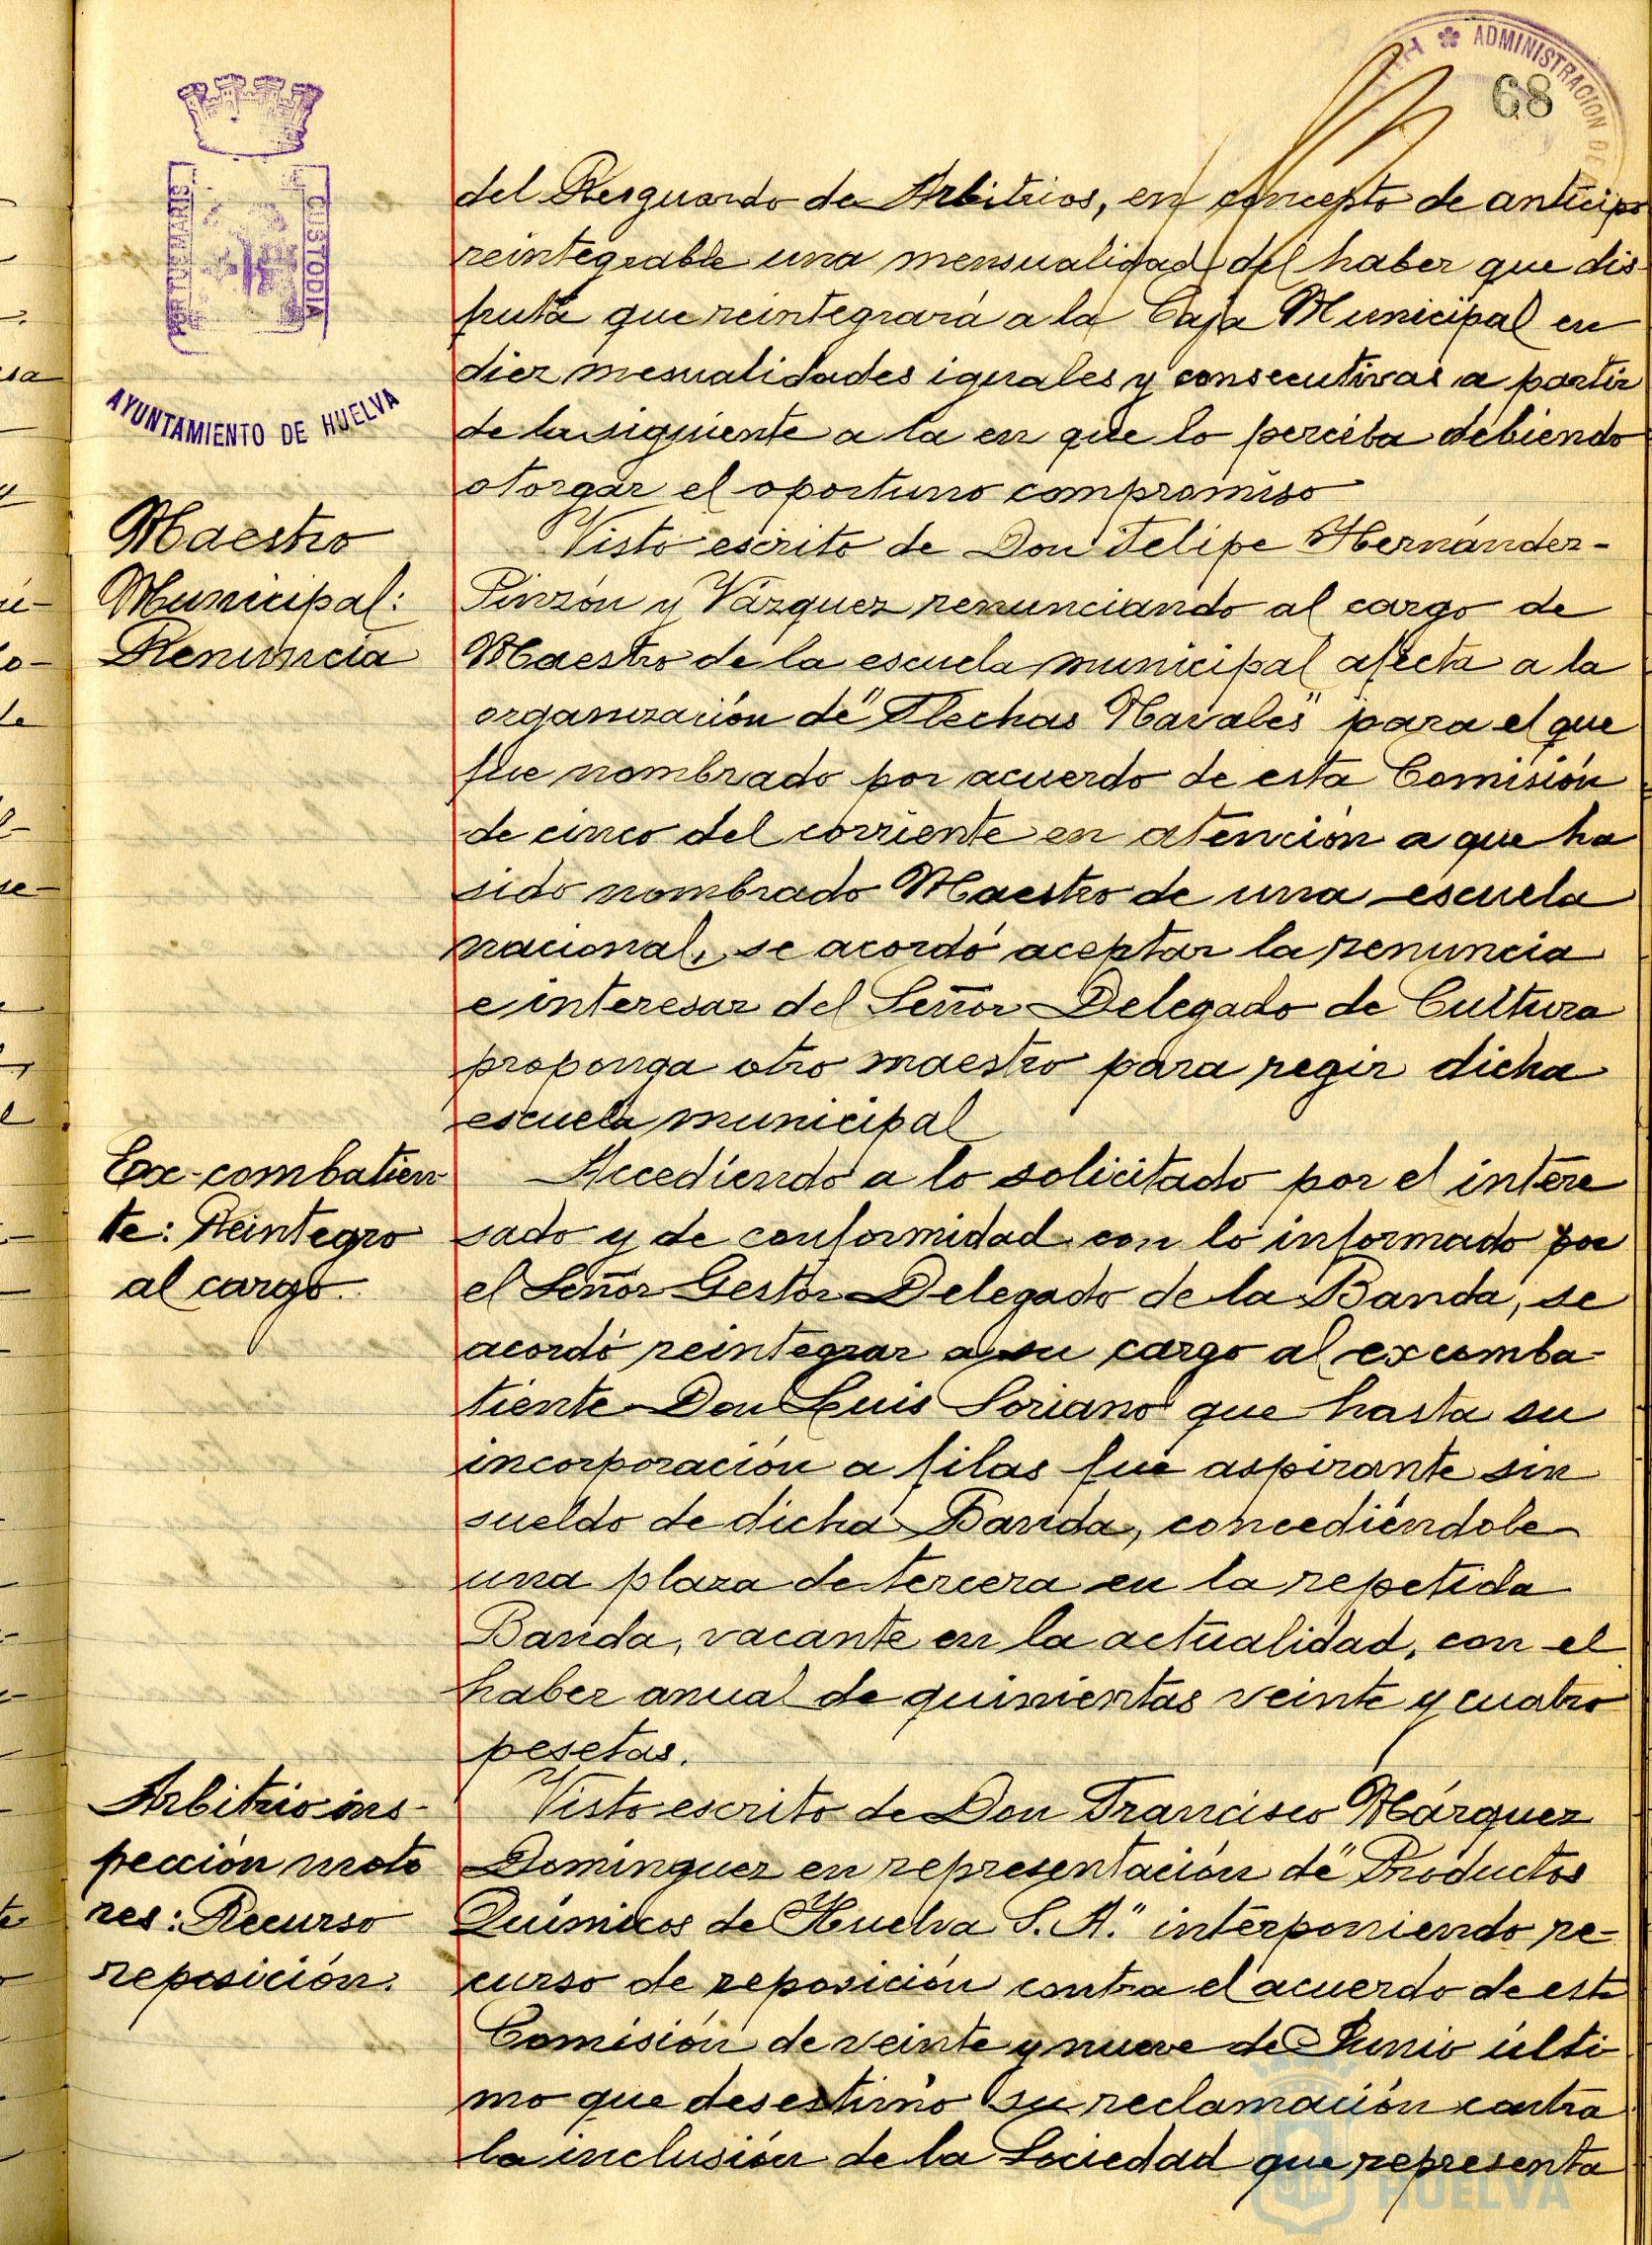 ADMINISTRACION DE
68
PORTUS MARIS
CUSTODIA
AYUNTAMIENTO DE HUELVA
del Resguardo de Arbitrios, en concepto de anticipo
reintegrable una mensualidad del haber que dis-
fruta que reintegrará a la Caja Municipal en
diez mesualidades iguales y consecutivas a partir
de la siguiente a la en que lo perciba debiendo
otorgar el oportuno compromiso
Maestro
Municipal:
Renuncia
Visto escrito de Don Felipe Hernández-
Pinzón y Vázquez renunciando al cargo de
Maestro de la escuela municipal afecta a la
organización de "Flechas Navales" para el que
fue nombrado por acuerdo de esta Comisión
de cinco del corriente en atención a que ha
sido nombrado Maestro de una escuela
nacional, se acordó aceptar la renuncia
e interesar del Señor Delegado de Cultura
proponga otro maestro para regir dicha
escuela municipal
Ex-combatien-
te: Reintegro
al cargo.
Accediendo a lo solicitado por el intere
sado y de conformidad con lo informado por
el Señor Gestor Delegado de la Banda, se
acordó reintegrar a su cargo al excomba-
tiente Don Luis Soriano que hasta su
incorporación a filas fué aspirante sin
sueldo de dicha Banda, concediéndole
una plaza de tercera en la repetida
Banda, vacante en la actualidad, con el
haber anual de quinientas veinte y cuatro
pesetas.
Arbitrio ins-
pección moto
res: Recurso
reposición.
Visto escrito de Don Francisco Márquez
Dominguez en representación de "Productos
Químicos de Huelva S. A." interponiendo re-
curso de reposición contra el acuerdo de esta
Comisión de veinte y nueve de Junio últi
mo que desestimó su reclamación contra
la inclusión de la Sociedad que representa
HUELVA